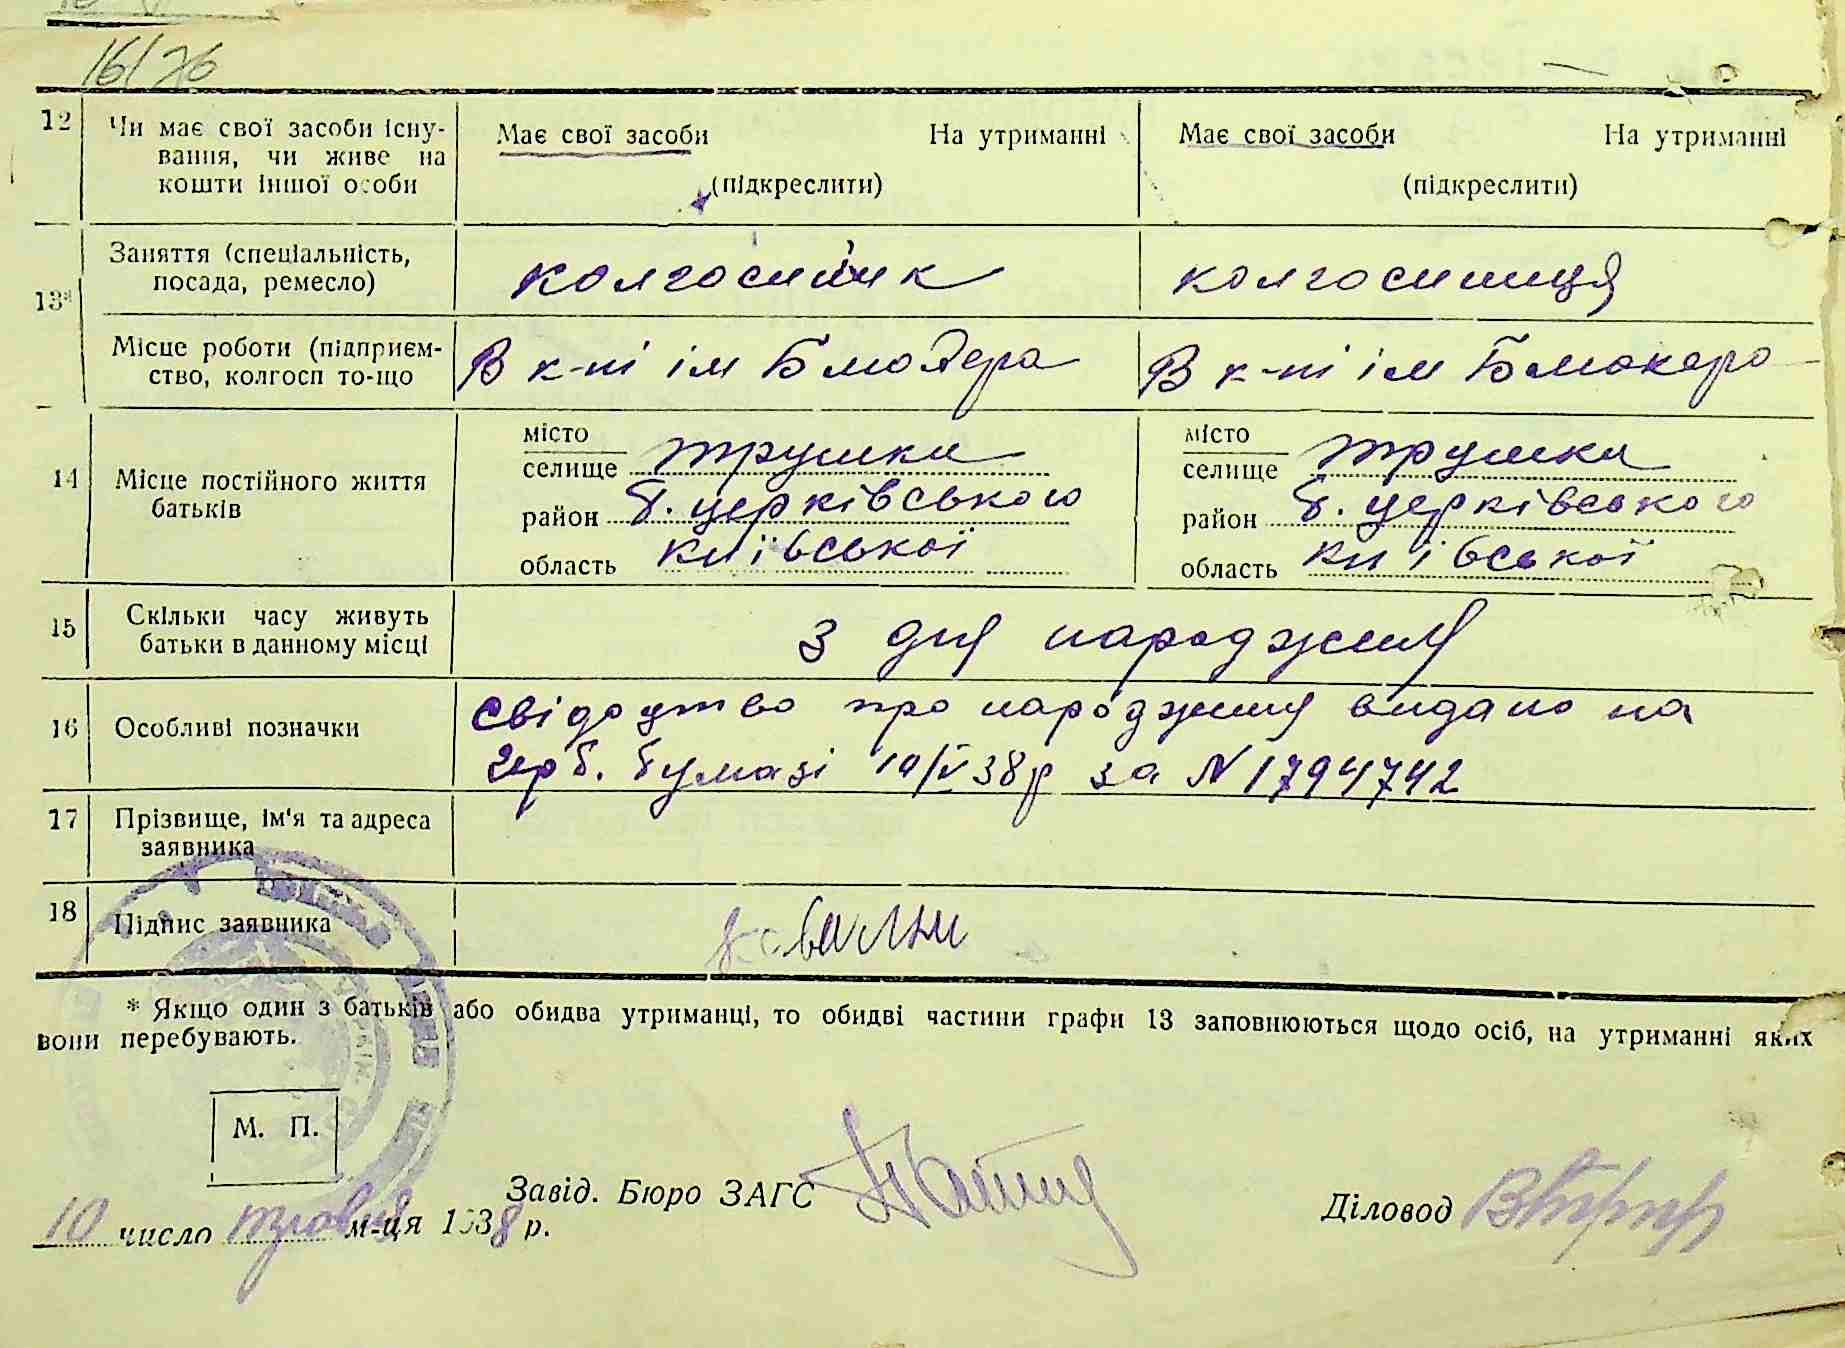 16/76
12 Чи має свої засоби існу-
вання, чи живе на
кошти іншої особи
Має свої засоби На утриманні
(підкреслити)
Має свої засоби На утриманні
(підкреслити)
13*
Заняття (спеціальність,
посада, ремесло)
колгоспник
колгоспниця
Місце роботи (підприєм-
ство, колгосп то-що
В к-пі ім Блюхера
В к-пі ім Блюхера
14 Місце постійного життя
батьків
місто
селище Трушки
район б. церківського
область київської
місто
селище Трушки
район б. церківського
область київської
15 Скільки часу живуть
батьки в данному місці
З дня народження
16 Особливі позначки
Свідоцтво про народження видано на
герб. бумазі 10/V 38р за N 1794742
17 Прізвище, ім'я та адреса
заявника
18 Підпис заявника
* Якщо один з батьків або обидва утриманці, то обидві частини графи 13 заповнюються щодо осіб, на утриманні яких
вони перебувають.
М. П.
Завід. Бюро ЗАГС
Діловод
10 число травня м-ця 1938 р.